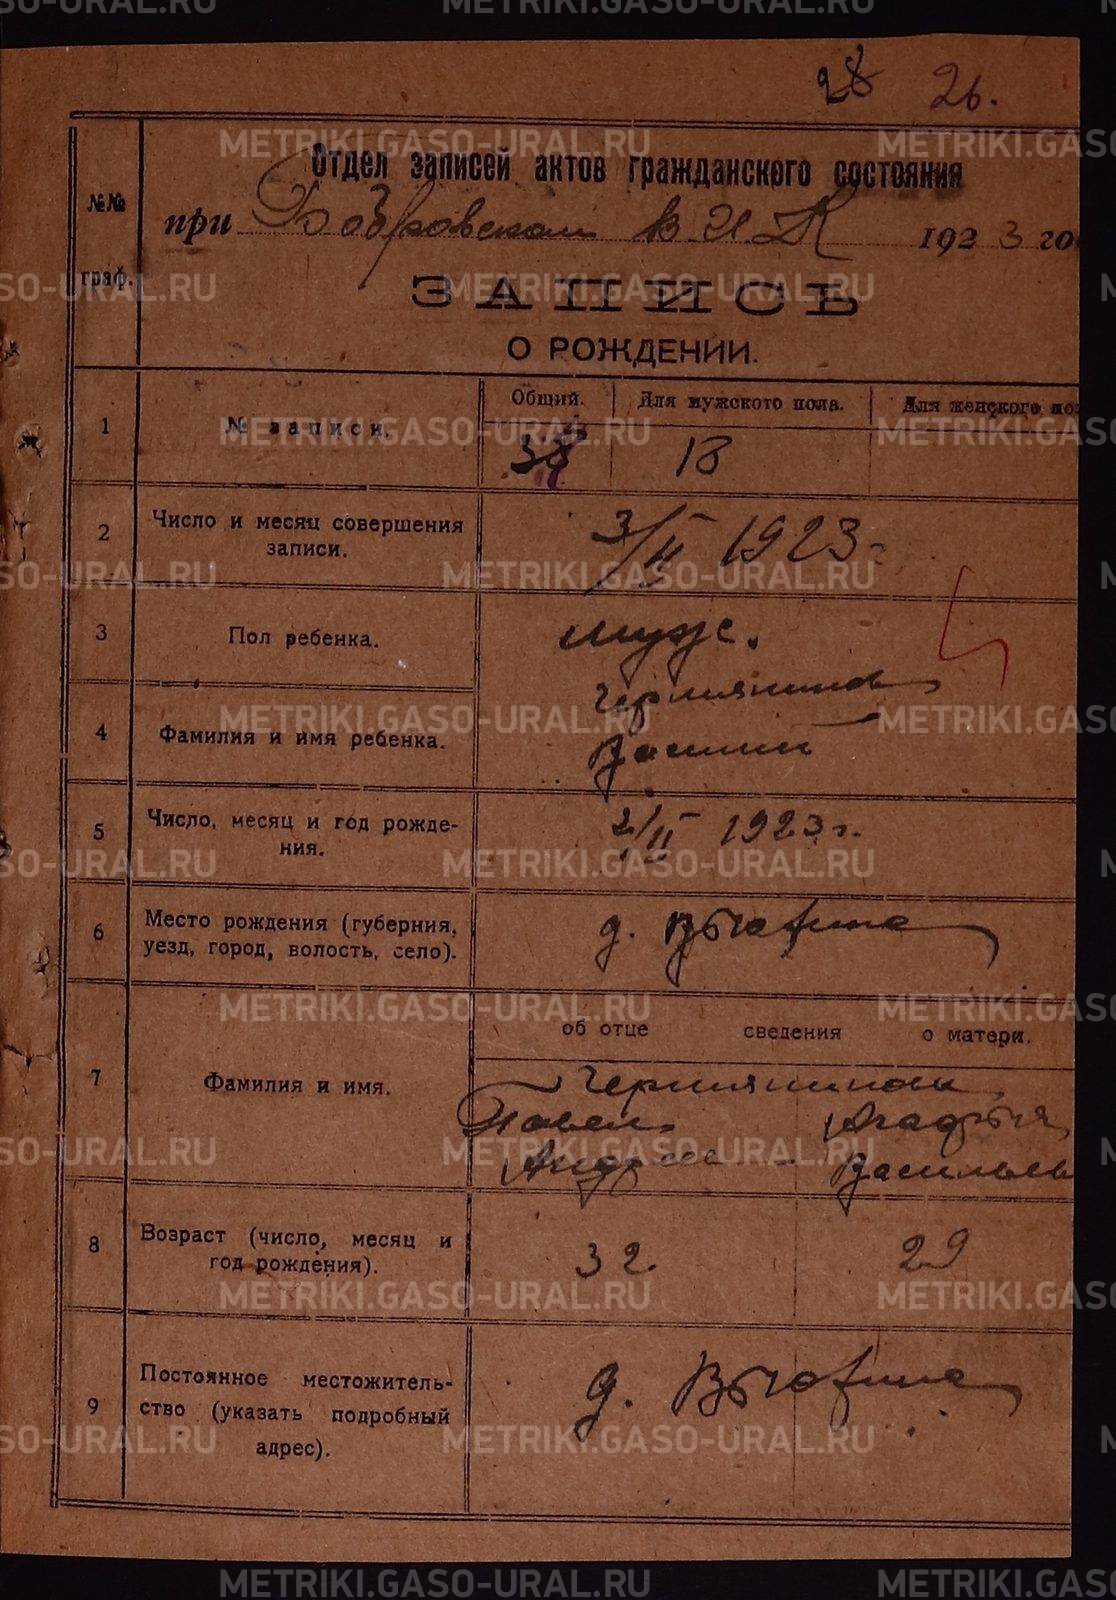 28 26.
Отдел записей актов гражданского состояния
№№
граф.
при Бобровском В.И.К 1923 го
ЗАПИСЬ
О РОЖДЕНИИ.
Общий. Для мужского пола. Для женского по
1 № записи. 18
2 Число и месяц совершения записи. 3/II 1923 г.
3 Пол ребенка. муж.
4 Фамилия и имя ребенка. Чермянинов
Василий
5 Число, месяц и год рожде-
ния. 2/II 1923 г.
6 Место рождения (губерния,
уезд, город, волость, село). д.
об отце сведения о матери.
7 Фамилия и имя. Чермяниновы
Павел Агафья
Андреев – Васильев
8 Возраст (число, месяц и
год рождения). 32 29
9 Постоянное местожитель-
ство (указать подробный
адрес). д.
METRIKI.GASO-URAL.RU